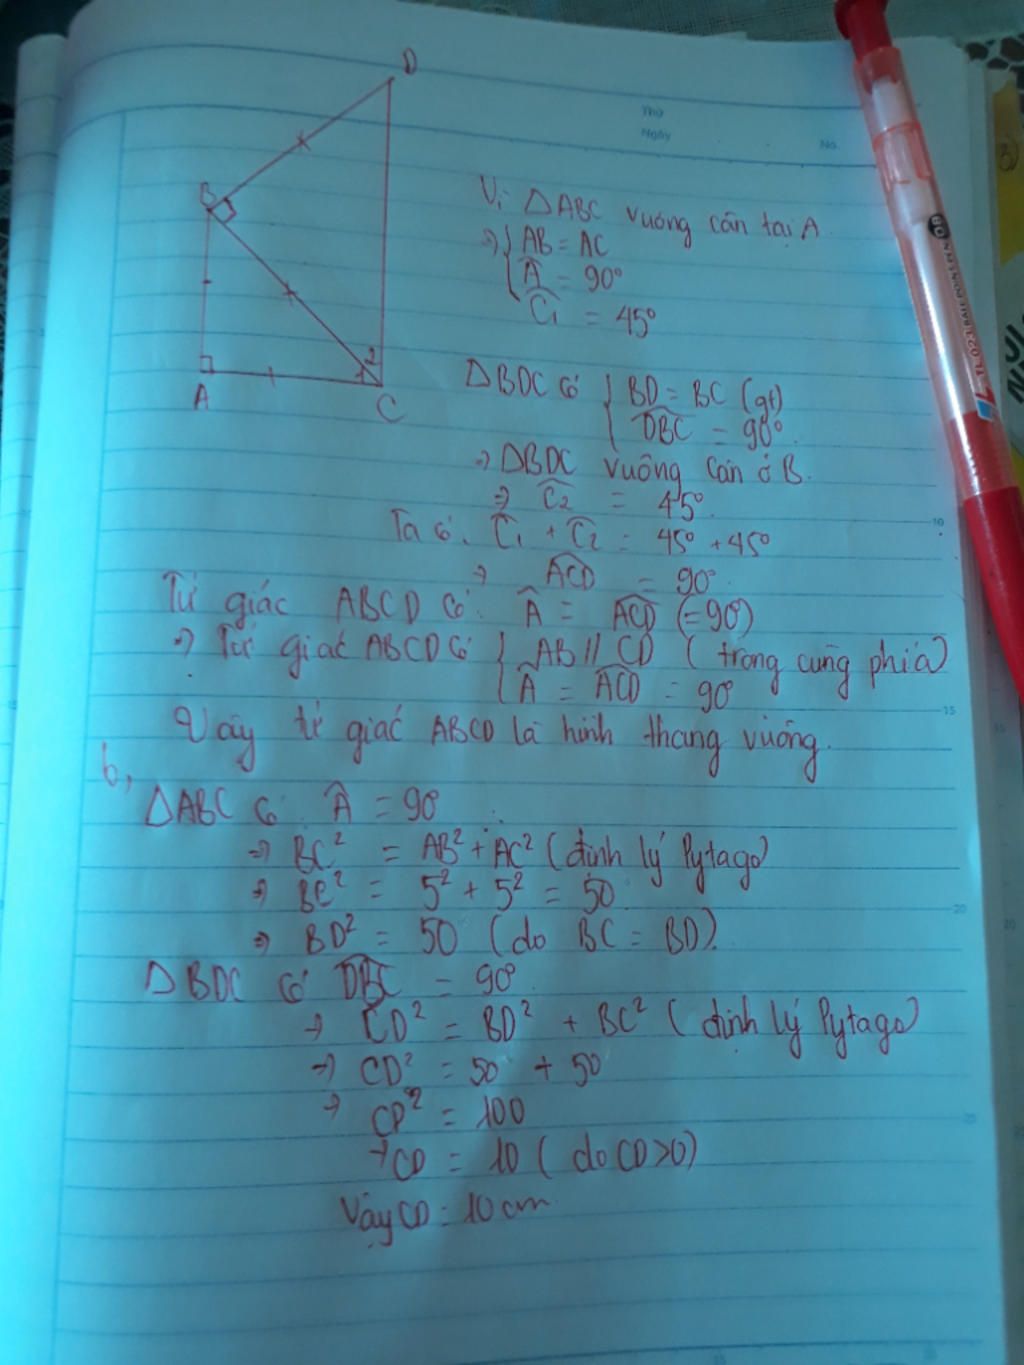 D
Thứ
Ngày
No.
B
Vì △ABC vuông cân tại A
=> { AB = AC
Â = 90°
Ĉ₁ = 45°
2
1
A
C
△BDC có { BD = BC (gt)
DBC = 90°.
=> △BDC vuông cân ở B.
=> Ĉ₂ = 45°.
Ta có. Ĉ₁ + Ĉ₂ = 45° + 45°
=> ACD = 90°.
Tứ giác ABCD có: Â = ACD (=90°)
=> Tứ giác ABCD có { AB // CD (trong cùng phía)
Â = ACD = 90°
Vậy tứ giác ABCD là hình thang vuông.
b,
△ABC có: Â = 90°
=> BC² = AB² + AC² (định lý Pytago)
=> BC² = 5² + 5² = 50
=> BD² = 50 (do BC = BD)
△BDC có DBC = 90°.
=> CD² = BD² + BC² (định lý Pytago)
=> CD² = 50 + 50
=> CD² = 100
=> CD = 10 (do CD>0)
Vậy CD = 10 cm.
10
15
20
25